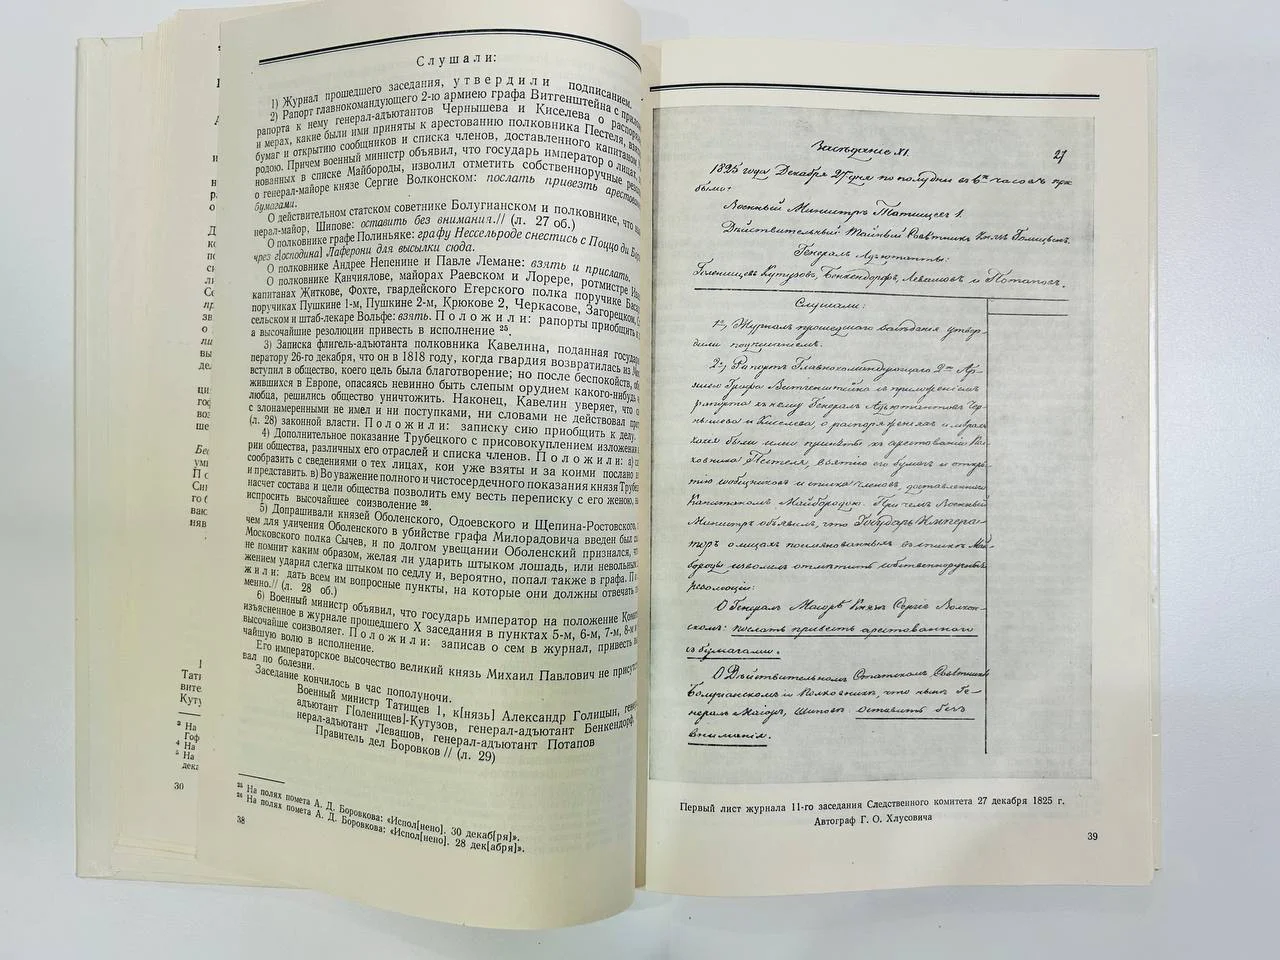 Слушали:
1) Журнал прошедшего заседания, утвердили подписанием.
2) Рапорт главнокомандующего 2-ю армиею графа Витгенштейна с
рапорта к нему генерал-адъютантов Чернышева и Киселева о
и мерах, какие были ими приняты к арестованию полковника Пестеля,
бумаг и открытию сообщников и списка членов, доставленного капитаном
родою. Причем военный министр объявил, что государь император о лицах,
нованных в списке Майбороды, изволил отметить собственноручные
о генерал-майоре князе Сергие Волконском: послать привезть
бумагами.
О действительном статском советнике Болугианском и полковнике, что
нерал-майор, Шипове: оставить без внимания.// (л. 27 об.)
О полковнике графе Полиньяке: графу Нессельроде снестись с Поццо ди
чрез г[осподина] Лаферони для высылки сюда.
О полковнике Андрее Непенине и Павле Лемане: взять и прислать.
О полковнике Канчиялове, майорах Раевском и Лорере, ротмистре
капитанах Житкове, Фохте, гвардейского Егерского полка поручике
поручиках Пушкине 1-м, Пушкине 2-м, Крюкове 2, Черкасове, Загорецком,
сельском и штаб-лекаре Вольфе: взять. Положили: рапорты приобщить к
а высочайшие резолюции привесть в исполнение 25.
3) Записка флигель-адъютанта полковника Кавелина, поданная
ператору 26-го декабря, что он в 1818 году, когда гвардия возвратилась из
вступил в общество, коего цель была благотворение; но после беспокойств,
жившихся в Европе, опасаясь невинно быть слепым орудием какого-нибудь
любца, решились общество уничтожить. Наконец, Кавелин уверяет, что
с злонамеренными не имел и ни поступками, ни словами не действовал
(л. 28) законной власти. Положили: записку сию приобщить к делу.
4) Дополнительное показание Трубецкого с присовокуплением изложения
рии общества, различных его отраслей и списка членов. Положили: а)
сообразить с сведениями о тех лицах, кои уже взяты и за коими послано
и представить. в) Во уважение полного и чистосердечного показания князя
насчет состава и цели общества позволить ему весть переписку с его женою,
испросить высочайшее соизволение 26.
5) Допрашивали князей Оболенского, Одоевского и Щепина-Ростовского,
чем для уличения Оболенского в убийстве графа Милорадовича введен был
Московского полка Сычев, и по долгом увещании Оболенский признался,
не помнит каким образом, желая ли ударить штыком лошадь, или невольным
жением ударил слегка штыком по седлу и, вероятно, попал также в графа.
жили: дать всем им вопросные пункты, на которые они должны отвечать
менно.// (л. 28 об.)
6) Военный министр объявил, что государь император на положение
изъясненное в журнале прошедшего X заседания в пунктах 5-м, 6-м, 7-м, 8-м
высочайше соизволяет. Положили: записав о сем в журнал, привесть
чайшую волю в исполнение.
Его императорское высочество великий князь Михаил Павлович не
вал по болезни.
Заседание кончилось в час пополуночи.
Военный министр Татищев 1, к[нязь] Александр Голицын,
адъютант Г[оленищев]-Кутузов, генерал-адъютант Бенкендорф,
нерал-адъютант Левашов, генерал-адъютант Потапов
Правитель дел Боровков // (л. 29)
25 На полях помета А. Д. Боровкова: «Испол[нено]. 30 декаб[ря]».
26 На полях помета А. Д. Боровкова: «Испол[нено]. 28 дек[абря]».
38
30
Заседание XI.
27
1825 года Декабря 27 дня по полудни в 6ть часовъ при
были:
Военный Министръ Татищевъ 1.
Действительный Тайный Советникъ Князь Голицынъ.
Генералъ Адъютанты:
Голенищевъ Кутузовъ, Бенкендорфъ, Левашовъ и Потаповъ.
Слушали:
1е, Журналъ прошедшаго заседания утвер-
дили подписаниемъ.
2е, Рапортъ Главнокомандующаго 2ю Ар-
миею Графа Витгенштейна съ приложениемъ
рапорта къ нему Генералъ Адъютантовъ Чер-
нышева и Киселева, о распоряженияхъ и мерахъ
какия были ими приняты къ арестованию Пол-
ковника Пестеля, взятию его бумагъ и откры-
тию сообщниковъ и списка членовъ, доставленнаго
Капитаномъ Майбородою. При чемъ Военный
Министръ объявилъ, что Государь Импера-
торъ о лицахъ поименованныхъ въ списке Май-
бороды изволилъ отметить собственноручныя
резолюции:
О Генералъ Маиоре Князе Сергие Волкон-
скомъ: послать привесть арестованнаго
съ бумагами.
О Действительномъ Статскомъ Советнике
Болугианскомъ и Полковнике, что ныне Ге-
нералъ Маиоръ, Шипове: оставить безъ
внимания.
Первый лист журнала 11-го заседания Следственного комитета 27 декабря 1825 г.
Автограф Г. О. Хлусовича
39